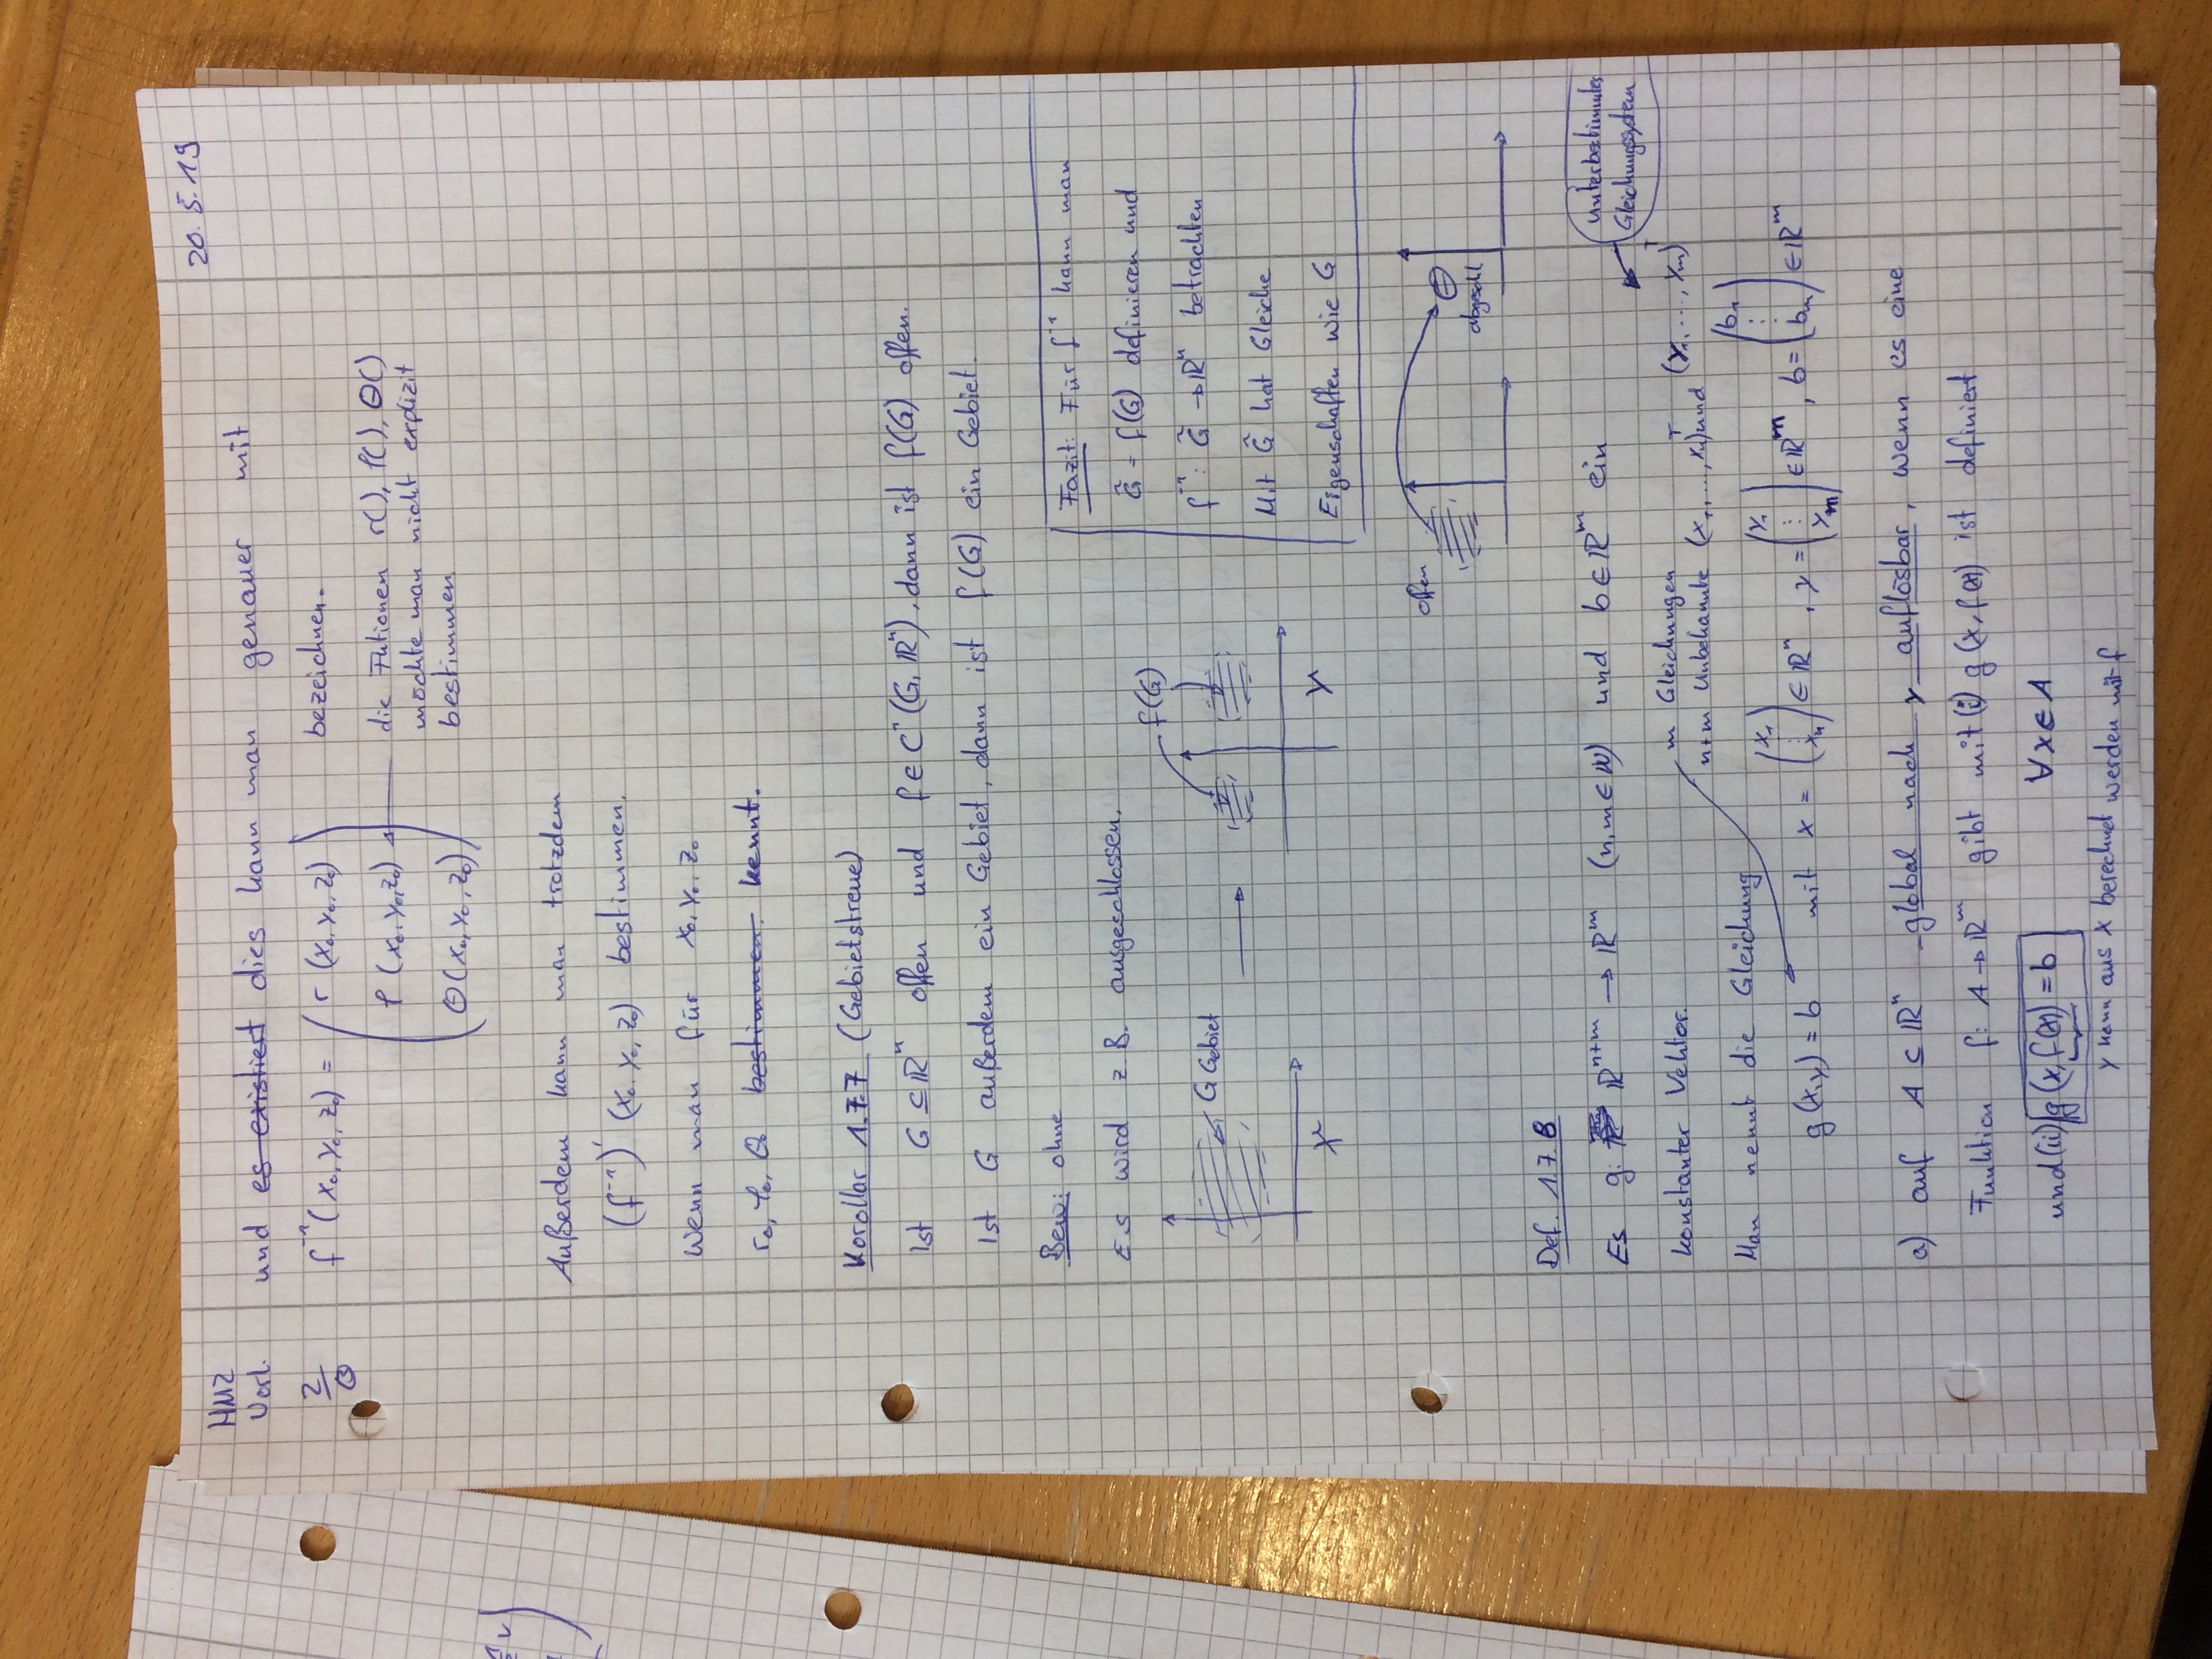 20.5.19
HM2
Vorl. und es existiert dies kann man genauer mit
f⁻¹(x₀, y₀, z₀) = ( r (x₀, y₀, z₀) bezeichnen.
φ (x₀, y₀, z₀) die Fktionen r(), φ(), Θ()
möchte man nicht explizit
Θ(x₀, y₀, z₀) ) bestimmen
Außerdem kann man trotzdem
(f⁻¹)' (x₀, y₀, z₀) bestimmen.
Wenn man für x₀, y₀, z₀
r₀, φ₀, Θ₀ bestimmen. kennt.
Korollar 1.7.7 (Gebietstreue)
Ist G ⊆ ℝⁿ offen und f ∈ C¹(G, ℝⁿ), dann ist f(G) offen.
Ist G außerdem ein Gebiet, dann ist f(G) ein Gebiet.
Bew: ohne
Es wird z.B. ausgeschlossen.
G Gebiet
f(G)
x
y
Fazit: Für f⁻¹ kann man
G̃ = f(G) definieren und
f⁻¹: G̃ → ℝⁿ betrachten
Mit G̃ hat Gleiche
Eigenschaften wie G
offen
abgeschl
Def. 1.7.8
Es g: ℝⁿ⁺ᵐ → ℝᵐ (n, m ∈ ℕ) und b ∈ ℝᵐ ein
unterbestimmtes
Gleichungssystem
konstanter Vektor.
m Gleichungen
n+m Unbekannte (x₁, ..., xₙ)ᵀ und (y₁, ..., yₘ)ᵀ
Man nennt die Gleichung
g(x,y) = b mit x = (x₁ ⋮ xₙ) ∈ ℝⁿ, y = (y₁ ⋮ yₘ) ∈ ℝᵐ, b = (b₁ ⋮ bₘ) ∈ ℝᵐ
a) auf A ⊆ ℝⁿ global nach y auflösbar, wenn es eine
Funktion f: A → ℝᵐ gibt mit (i) g(x, f(x)) ist definiert
und (ii) g(x, f(x)) = b ∀ x ∈ A
y kann aus x berechnet werden mit f